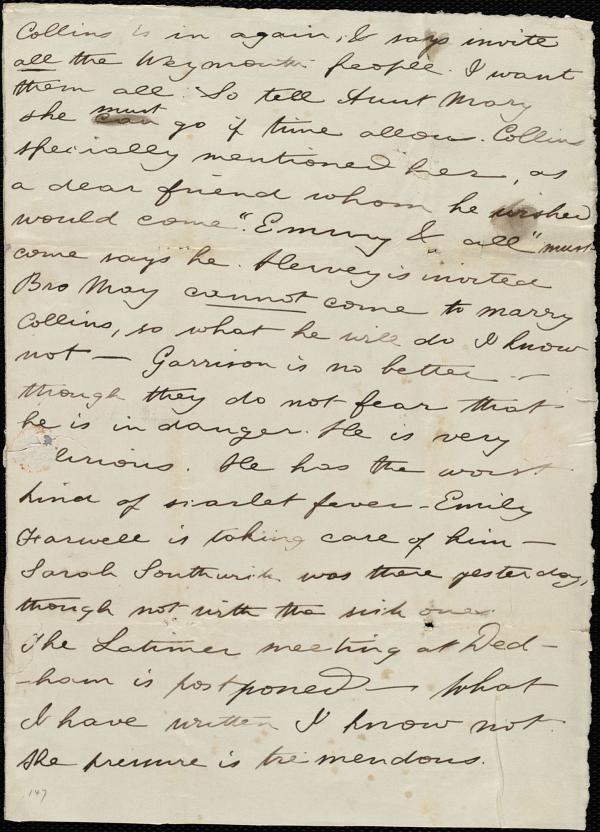 Collins is in again, & says invite
all the Weymouth people. I want
them all. So tell Aunt Mary
she must go if time allow. Collins
specially mentioned her, as
a dear friend whom he wished
would come". Emmy & all "must
come says he. Hervey is invited
Bro May cannot come to marry
Collins, so what he will do I know
not — Garrison is no better —
though they do not fear that
he is in danger. He is very
lirious. He has the worst
kind of scarlet fever - Emily
Farwell is taking care of him —
Sarah Southwick was there yesterday,
though not with the sick one.
The Latimer meeting at Ded-
-ham is postponed — What
I have written I know not.
the pressure is tremendous.
147